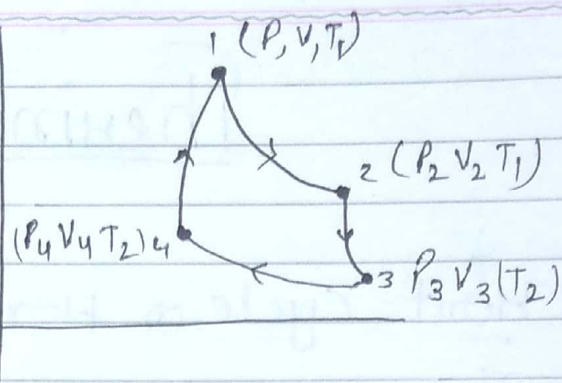 1 (P, V, T1)
2 (P2 V2 T1)
(P4 V4 T2) 4
3 P3 V3 (T2)